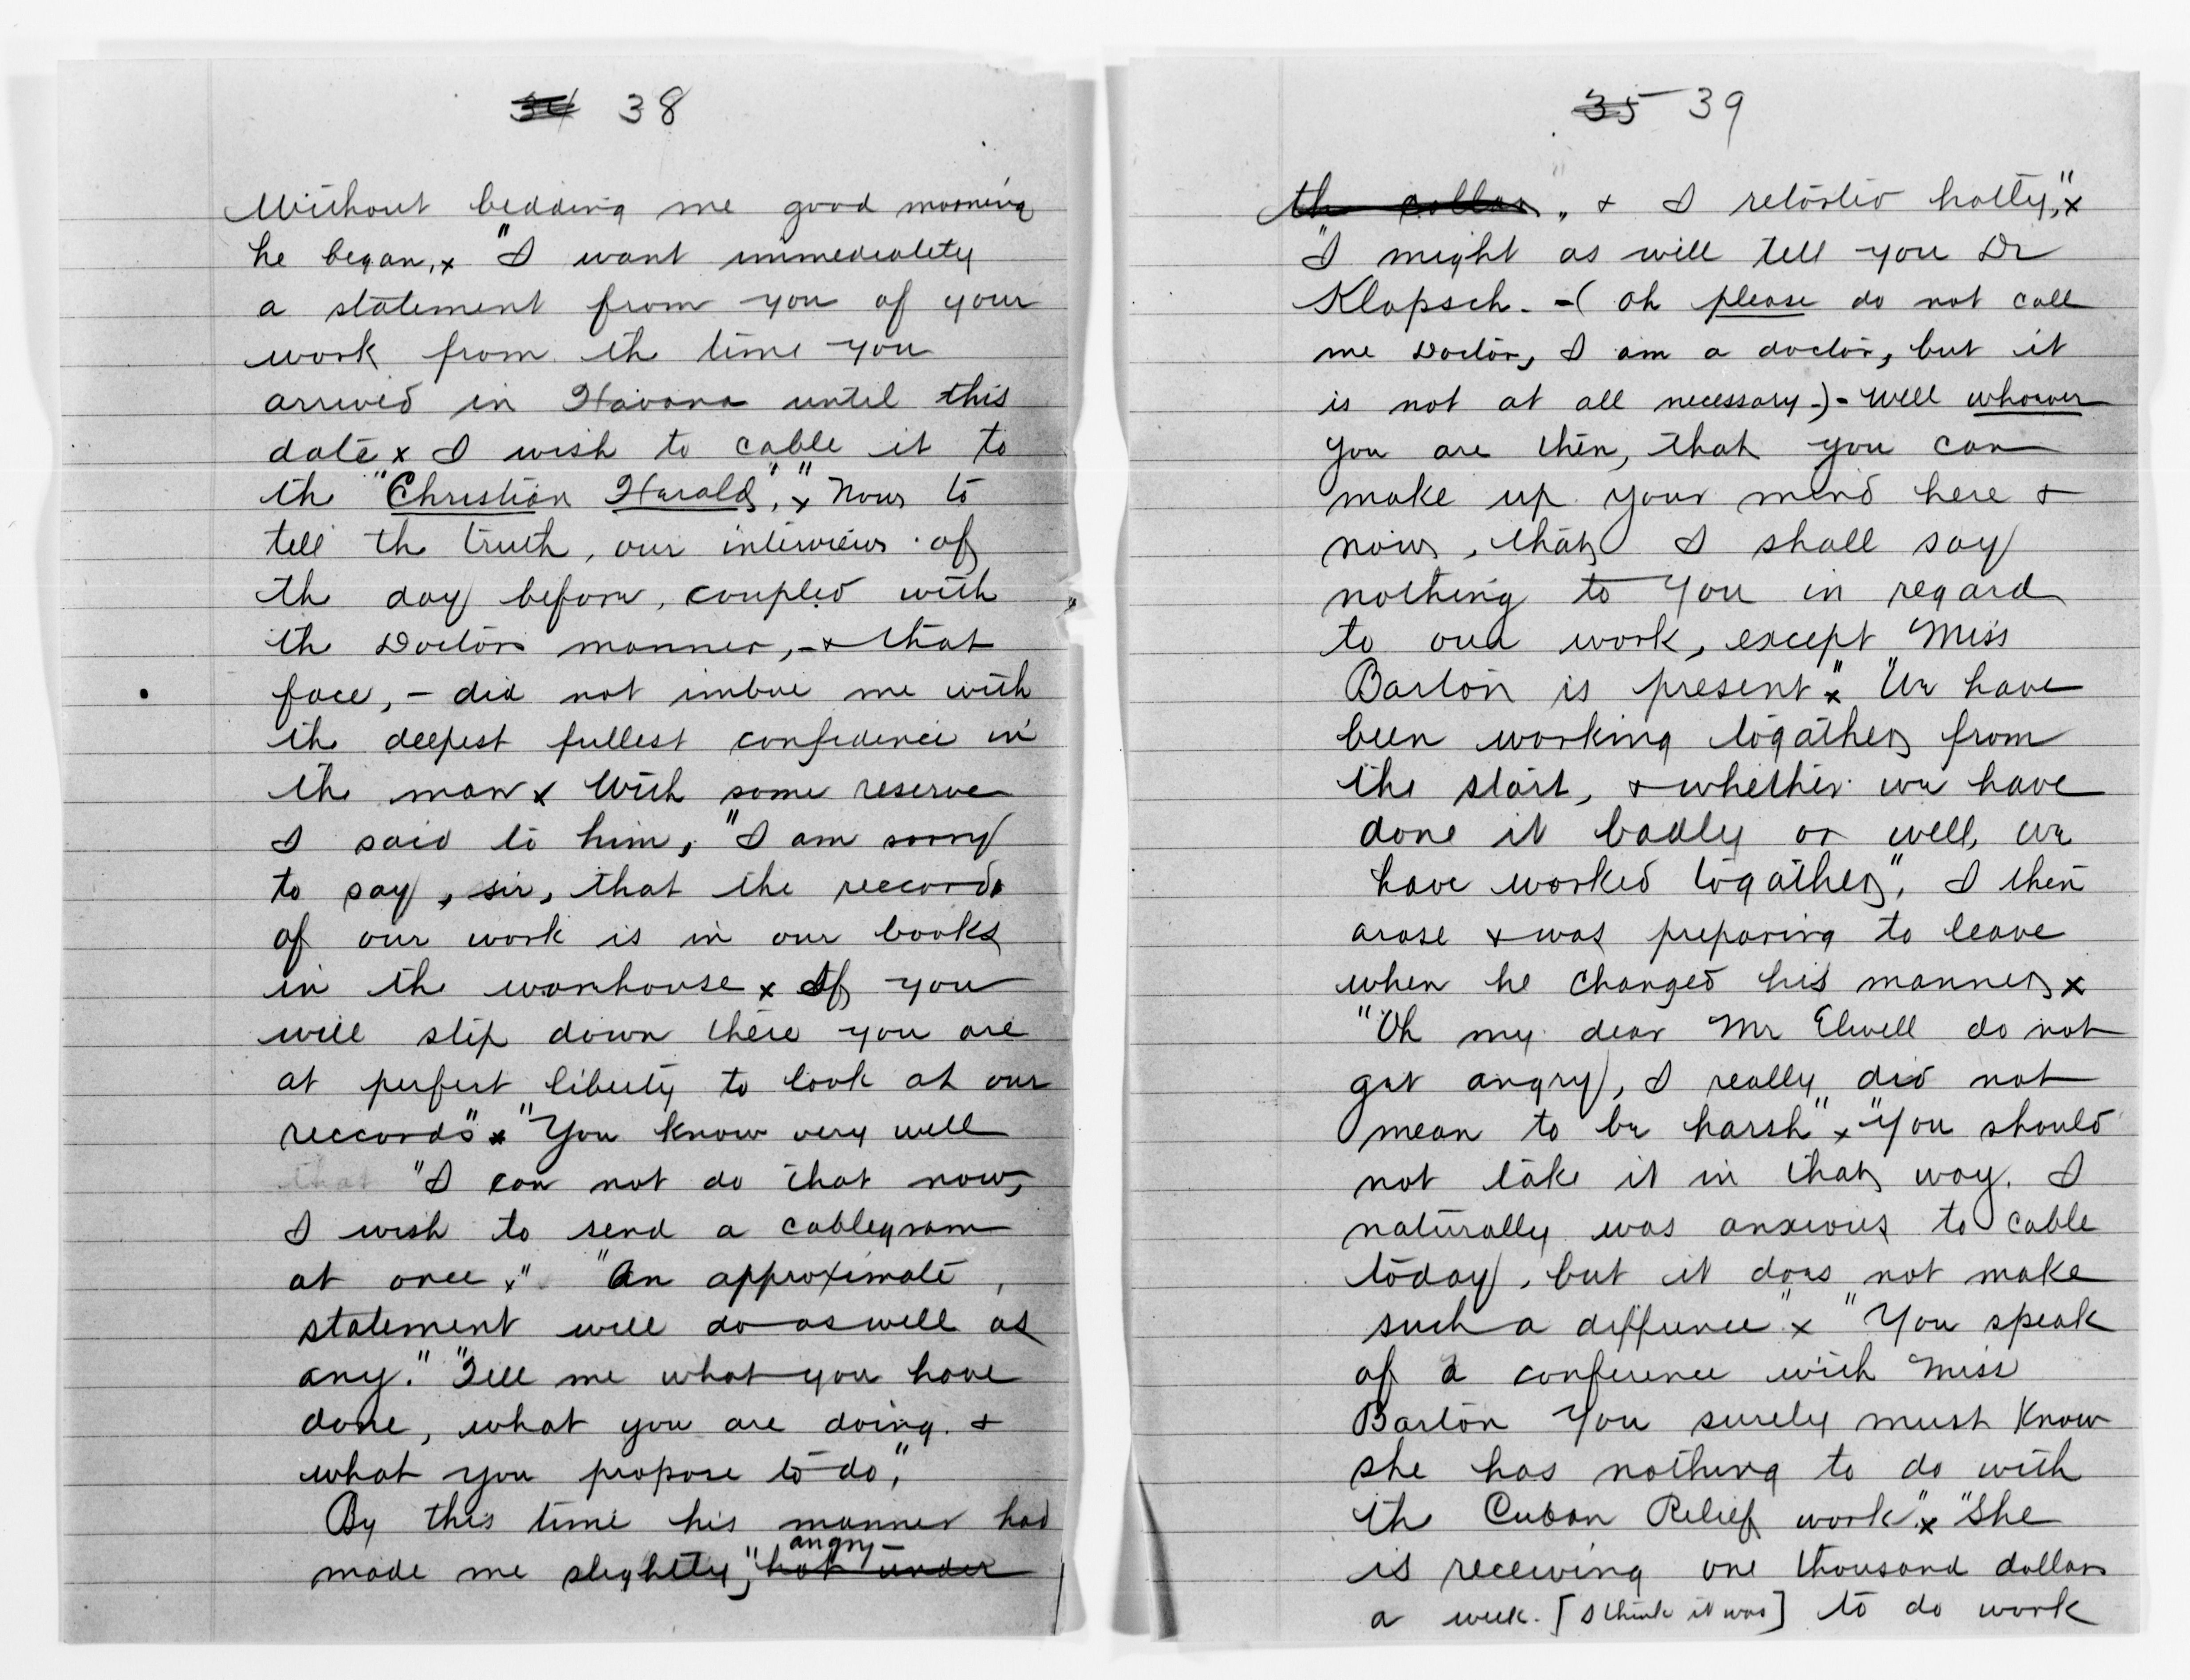 34 38
Without bidding me good morning
he began, x "I want immediately
a statement from you of your
work from the time you
arrived in Havana until this
date x I wish to cable it to
the "Christian Herald", x" Now to
tell the truth, our interview of
the day before, coupled with
the Doctors manner, - & that
face, - did not imbue me with
the deepest fullest confidence in
the man x With some reserve
I said to him, "I am sorry
to say, sir, that the reccords
of our work is in our books
in the warehouse x If you
will step down there you are
at perfect liberty to look at our
reccords" x "You know very well
that "I can not do that now,
I wish to send a cablegram
at once x" "An approximate
statement will do as well as
any." "Tell me what you have
done, what you are doing &
what you propose to do,"
By this time his manner had
angry
made me slightly," hot under
35 39
the collar," & I retorted hotly," x
"I might as well tell you Dr
Klopsch. - ( Oh please do not call
me Doctor, I am a doctor, but it
is not at all necessary.) - Well whoever
you are then, that you can
make up your mind here &
now, that I shall say
nothing to you in regard
to our work, except Miss
Barton is present" x "We have
been working togather from
the start, & whether we have
done it badly or well, we
have worked togather". I then
arose & was preparing to leave
when he changed his manner x
"Oh my dear Mr Elwell do not
get angry, I really did not
mean to be harsh" x "You should
not take it in that way. I
naturally was anxious to cable
today, but it does not make
such a differnce" x "You speak
of a conference with Miss
Barton You surely must know
she has nothing to do with
the Cuban Relief work" x "She
is receiving one thousand dollars
a week. [I think it was] to do work